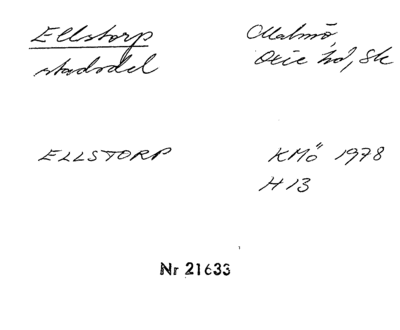 Ellstorp
stadsdel
Malmö,
Oxie hd, Sk
ELLSTORP
KMÖ 1978
H 13
Nr 21633